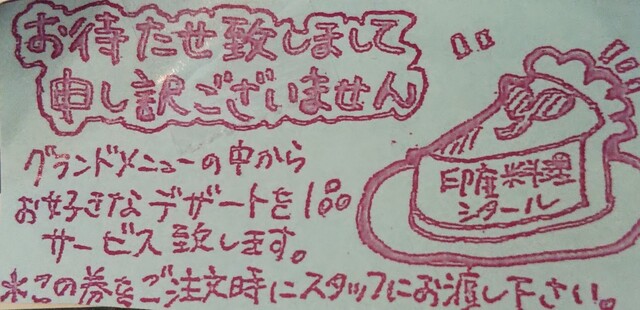 お待たせ致しまして
申し訳ございません
グランドメニューの中から
お好きなデザートを1品
サービス致します。
印度料理
シタール
*この券をご注文時にスタッフにお渡し下さい。